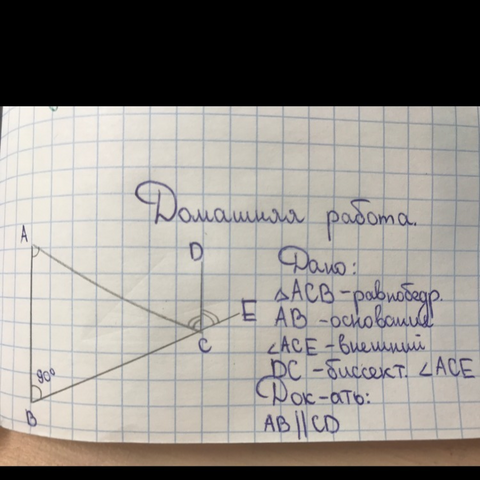 Домашняя работа.
A
D
E
C
90°
B
Дано:
△ACB - равнобедр.
AB - основание
∠ACE - внешний
DC - биссект. ∠ACE
Док-ать:
AB || CD